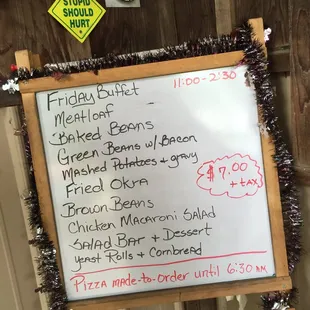 STUPID
SHOULD
HURT
11:00-2:30
Friday Buffet
Meatloaf
Baked Beans
Green Beans w/Bacon
Mashed Potatoes & gravy
Fried Okra
$7.00
+ tax
Brown Beans
Chicken Macaroni Salad
Salad Bar + Dessert
Yeast Rolls & Cornbread
Pizza made-to-order until 6:30 AM